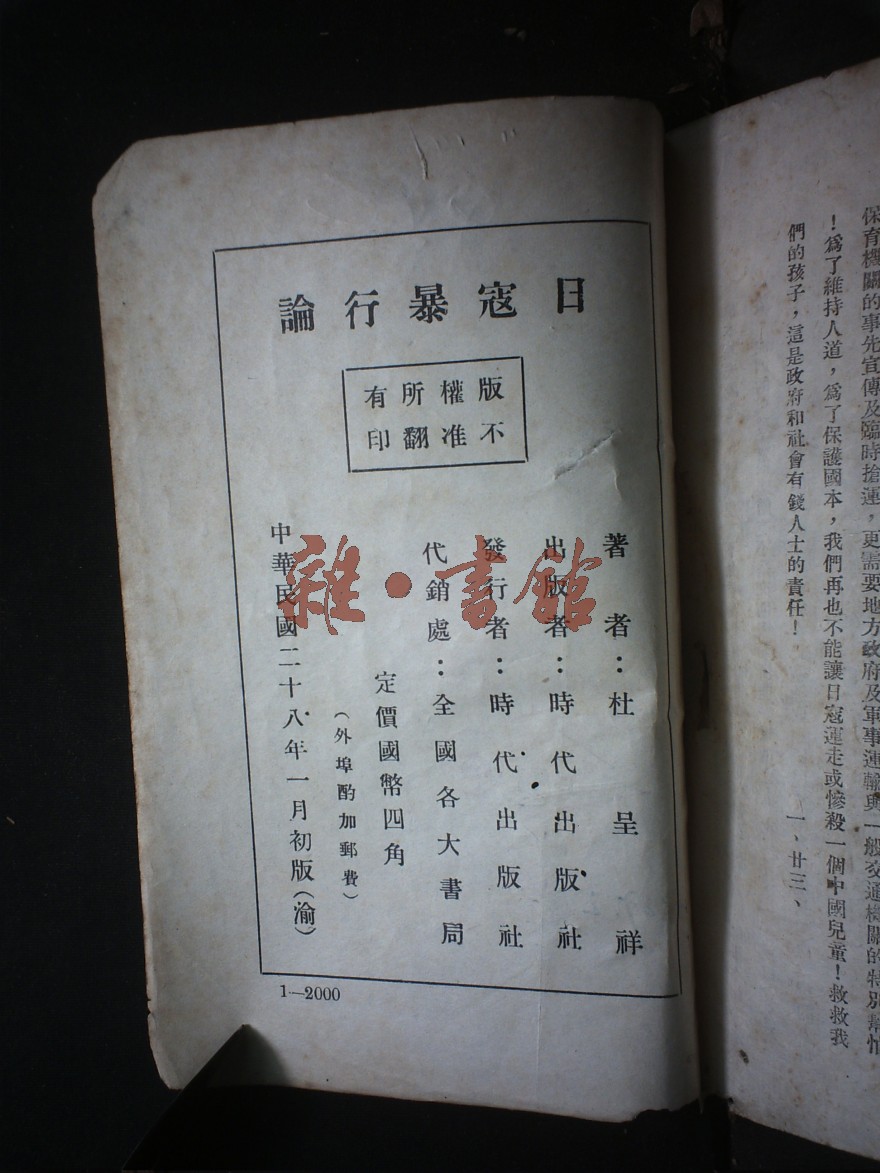 保育機關的事先宣傳及臨時搶運，更需要地方政府及軍事運輸與一般交通機關的特別幫忙
！爲了維持人道，爲了保護國本，我們再也不能讓日寇運走或慘殺一個中國兒童！救救我
們的孩子，這是政府和社會有錢人士的責任！
一、廿三、
日寇暴行論
版權所有
不准翻印
著者：杜呈祥
出版者：時代出版社
發行者：時代出版社
代銷處：全國各大書局
定價國幣四角
（外埠酌加郵費）
中華民國二十八年一月初版（渝）
1—2000
雜·書館